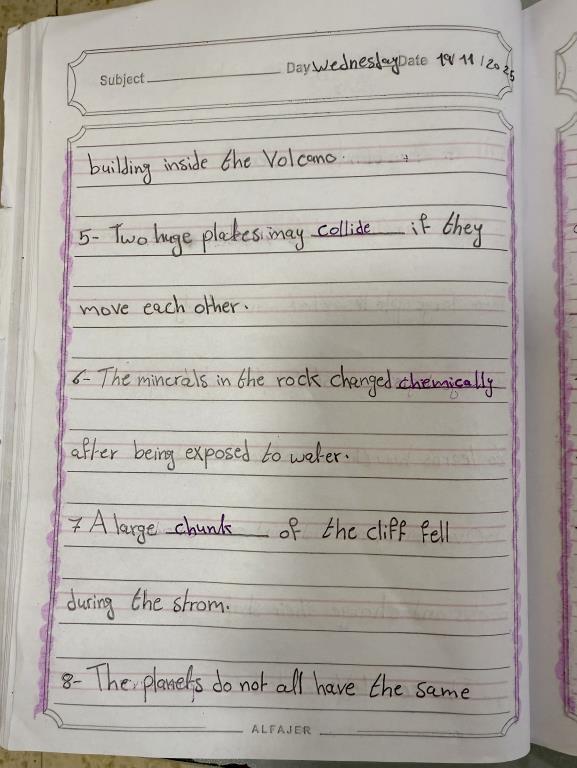 Subject Day Wednesday Date 19/11/2025
building inside the Volcano.
5- Two huge plates may collide if they
move each other.
6- The minerals in the rock changed chemically
after being exposed to water.
7 A large chunk of the cliff fell
during the strom.
8- The planets do not all have the same
ALFAJER